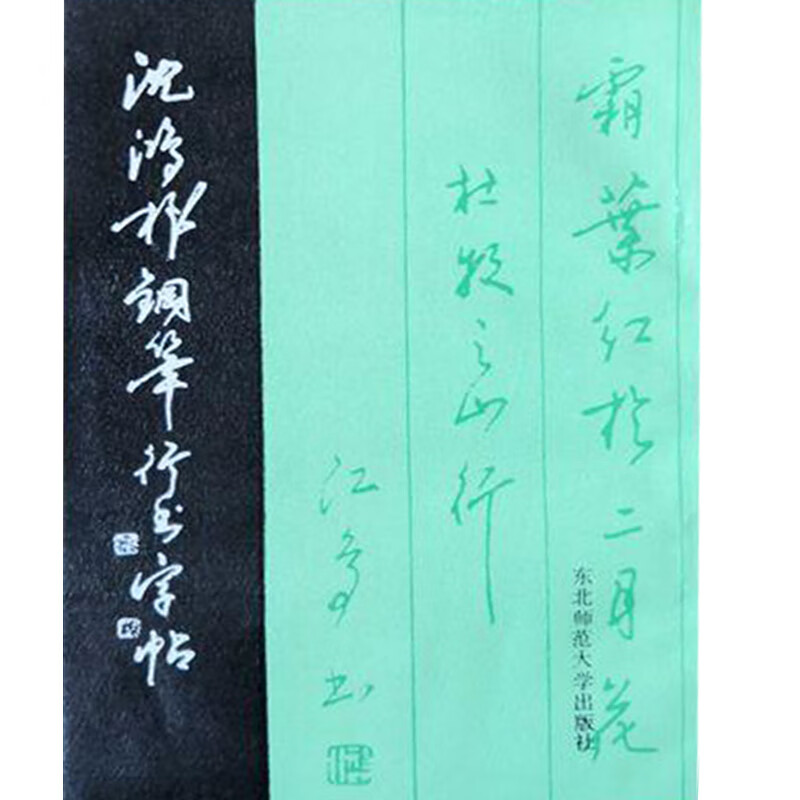 霜葉红於二月花
东北师范大学出版社
杜牧之山行
江鸟书
沈鸿根鋼筆行书字帖